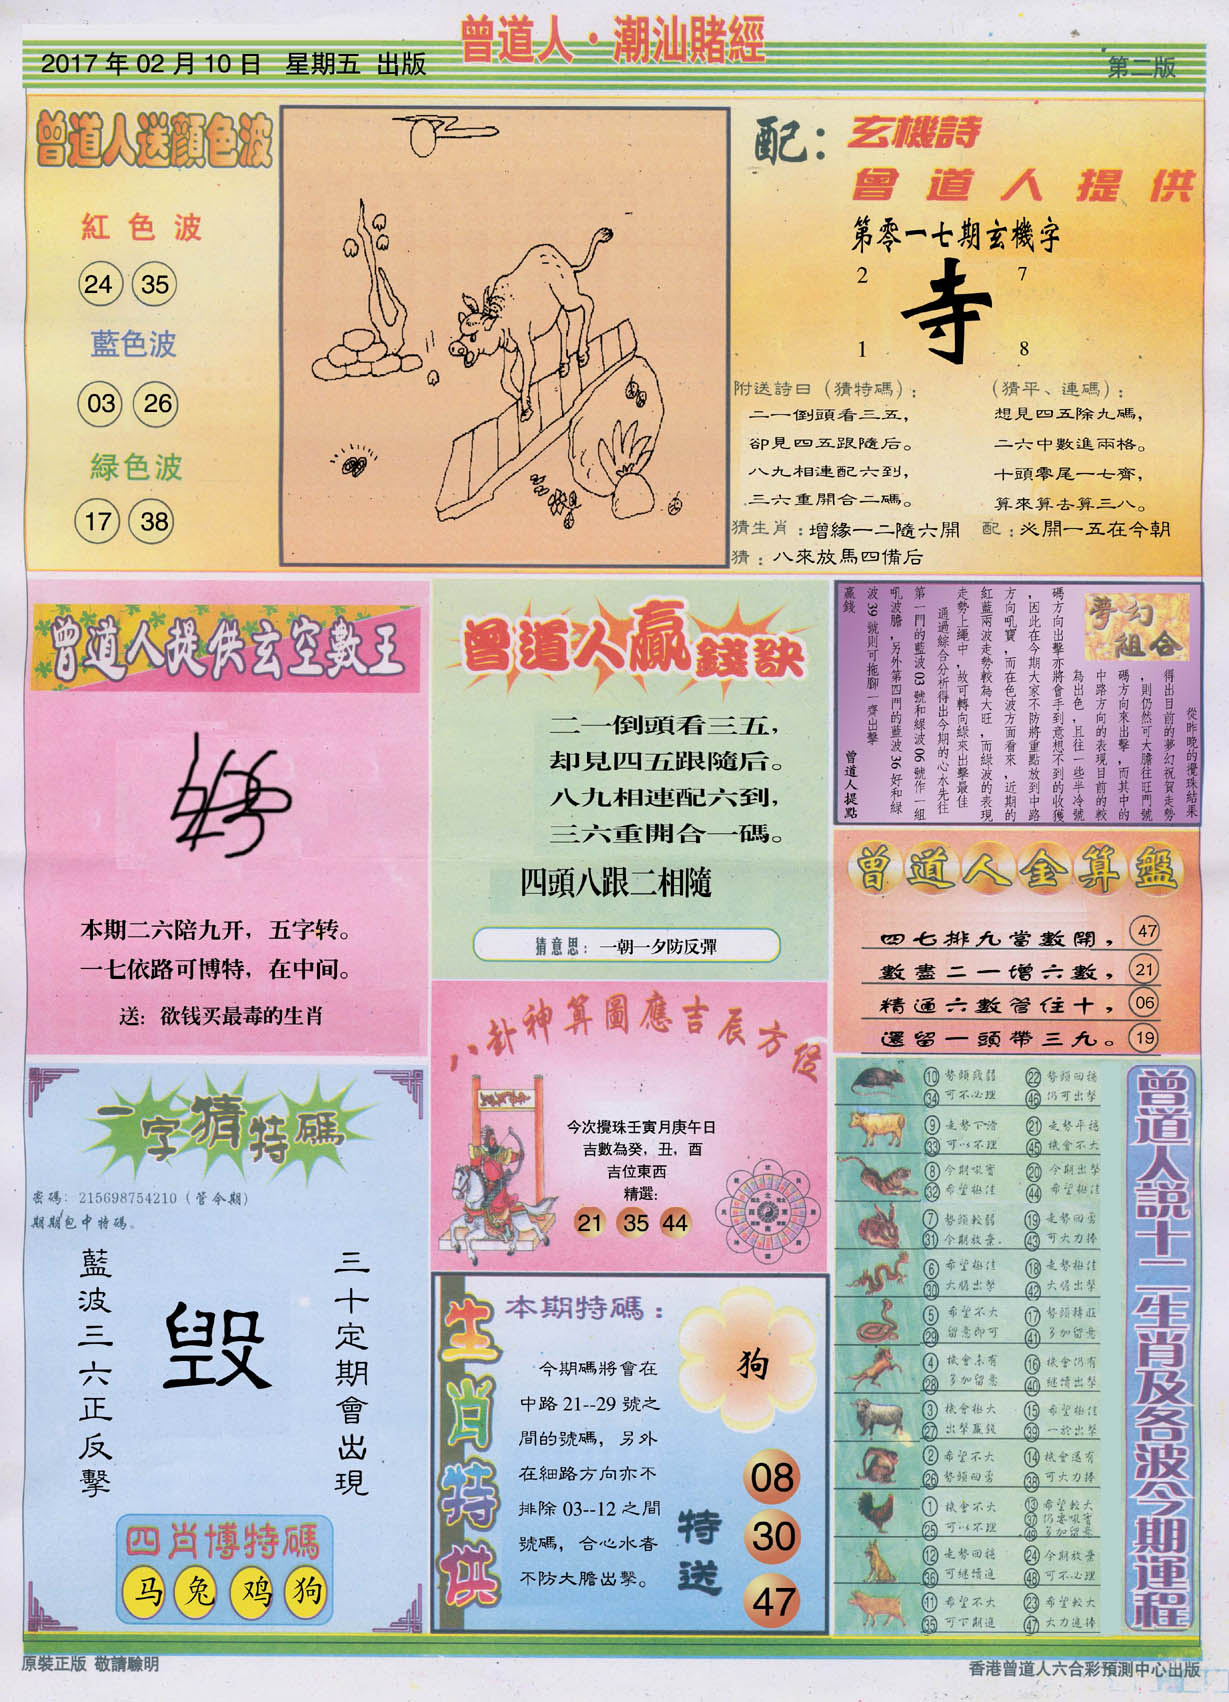 曾道人·潮汕賭經
2017年02月10日 星期五 出版
第二版
曾道人送顏色波
紅色波
24 35
藍色波
03 26
緑色波
17 38
配：玄機詩
曾道人提供
第零一七期玄機字
2 7
寺
1 8
附送詩曰（猜特碼）：
二一倒頭看三五，
卻見四五跟隨后。
八九相連配六到，
三六重開合二碼。
（猜平、連碼）：
想見四五除九碼，
二六中數進兩格。
十頭零尾一七齊，
算來算去算三八。
猜生肖：增緣一二隨六開
配：必開一五在今朝
猜：八來放馬四備后
曾道人提供玄空數王
本期二六陪九开，五字转。
一七依路可博特，在中间。
送：欲钱买最毒的生肖
曾道人贏錢訣
二一倒頭看三五，
却見四五跟隨后。
八九相連配六到，
三六重開合一碼。
四頭八跟二相隨
猜意思：一朝一夕防反彈
夢幻組合
從昨晚的攪珠結果
得出目前的夢幻祝賀走勢
，則仍然可大膽往旺門號
碼方向來出擊，而其中的
中路方向的表現目前的較
為出色，且往一些半冷號
碼方向出擊亦將會手到意想不到的收獲
，因此在今期大家不防將重點放到中路
方向吼寶，而在色波方面看來，近期的
紅藍兩波走勢較為大旺，而綠波的表現
走勢上繩中，故可轉向綠來出擊最佳
通過綜合分析得出今期的心水先往
第一門的藍波03號和綠波06號作一組
吼波膽，另外第四門的藍波36好和綠
波39號則可拖腳一齊出擊
贏錢
曾道人提點
曾道人金算盤
四七排九當數開， 47
數盡二一增六數， 21
精通六數管住十， 06
還留一頭帶三九。 19
八卦神算圖應吉辰方位
今次攪珠壬寅月庚午日
吉數為癸，丑，酉
吉位東西
精選：
21 35 44
一字猜特碼
密碼：215698754210（管今期）
期期包中特碼。
三十定期會出現
毀
藍波三六正反擊
四肖博特碼
马 兔 鸡 狗
生肖特供
本期特碼：
狗
今期碼將會在
中路21--29號之
間的號碼，另外
在細路方向亦不
排除03--12之間
號碼，合心水者
不防大膽出擊。
特送
08
30
47
曾道人説十二生肖及各波今期運程
10 勢頭殘弱 22 勢頭回穩
34 可不必理 46 仍可出擊
9 走勢下滑 21 走勢平穩
33 可以不理 45 機會不大
8 今期吼寶 20 今期出擊
32 希望極佳 44 希望極佳
7 勢頭較弱 19 走勢回勇
31 今期放棄. 43 可大力捧
6 希望極佳 18 走勢極佳
30 大膽出擊 42 大膽出擊
5 希望不大 17 勢頭轉旺
29 留意即可 41 多加留意
4 機會未有 16 機會仍有
28 多加留意 40 繼續出擊
3 機會極大 15 希望極佳
27 出擊贏錢 39 一於出擊
2 希望不大 14 機會還有
26 勢頭回勇 38 可大力捧
1 機會不大 13 希望較大
25 可以不理 37 仍要吼實
49 多加留意
12 走勢回穩 24 今期放棄
36 可繼續追 48 可不必理
11 希望不大 23 希望較大
35 可下期追 47 大力追捧
原裝正版 敬請驗明
香港曾道人六合彩預測中心出版